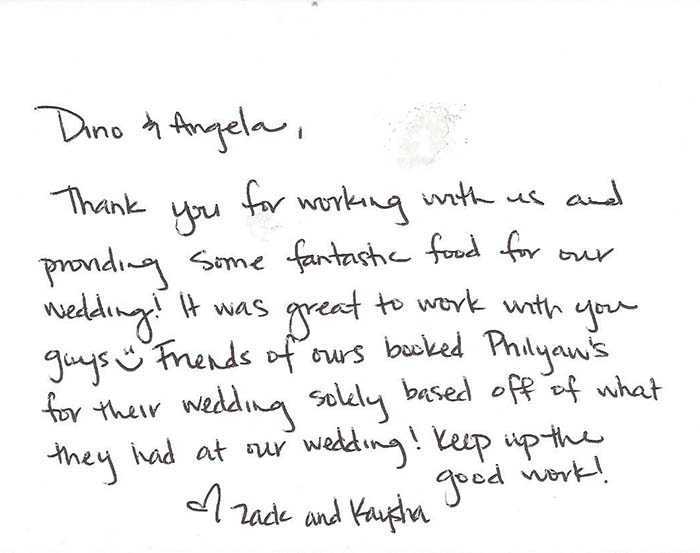 Dino & Angela,
Thank you for working with us and
providing some fantastic food for our
wedding! It was great to work with you
guys :) Friends of ours booked Philyaw's
for their wedding solely based off of what
they had at our wedding! Keep up the
good work!
♡ Zack and Kaysha